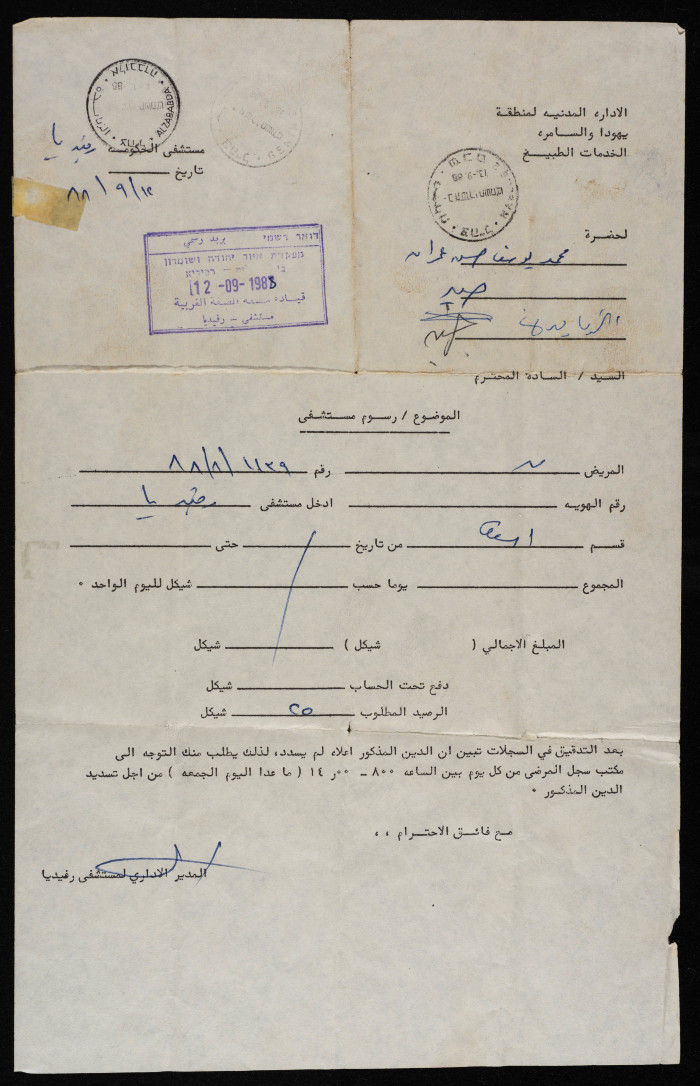 الاداره المدنيه لمنطقة
يهودا والسامره
الخدمات الطبيـة
مستشفى الحكومه رفيديا
تاريخ ١٢/٩/٨٨
דואר רשמי بريد رسمي
מפקדת אזור יהודה ושומרון
12 -09- 1988
قيادة منطقة الضفة الغربية
مستشفى - رفيديا
لحضرة محمد يوسف حسن عمران
السيد / السادة المحترم
الموضوع / رسوم مستشفى
المريض رقم ١١٣٩/٨/٨٨
رقم الهويه ادخل مستشفى رفيديا
قسم من تاريخ حتى
المجموع يوما حسب شيكل لليوم الواحد ٠
المبلغ الاجمالي ( شيكل ) شيكل
دفع تحت الحساب شيكل
الرصيد المطلوب ٢٥ شيكل
بعد التدقيق في السجلات تبين ان الدين المذكور اعلاه لم يسدد، لذلك يطلب منك التوجه الى
مكتب سجل المرضى من كل يوم بين الساعه ٨٠٠ - ٠٠ر١٤ ( ما عدا اليوم الجمعه ) من اجل تسديد
الدين المذكور ٠
مع فائق الاحترام ،،
المدير الاداري لمستشفى رفيديا